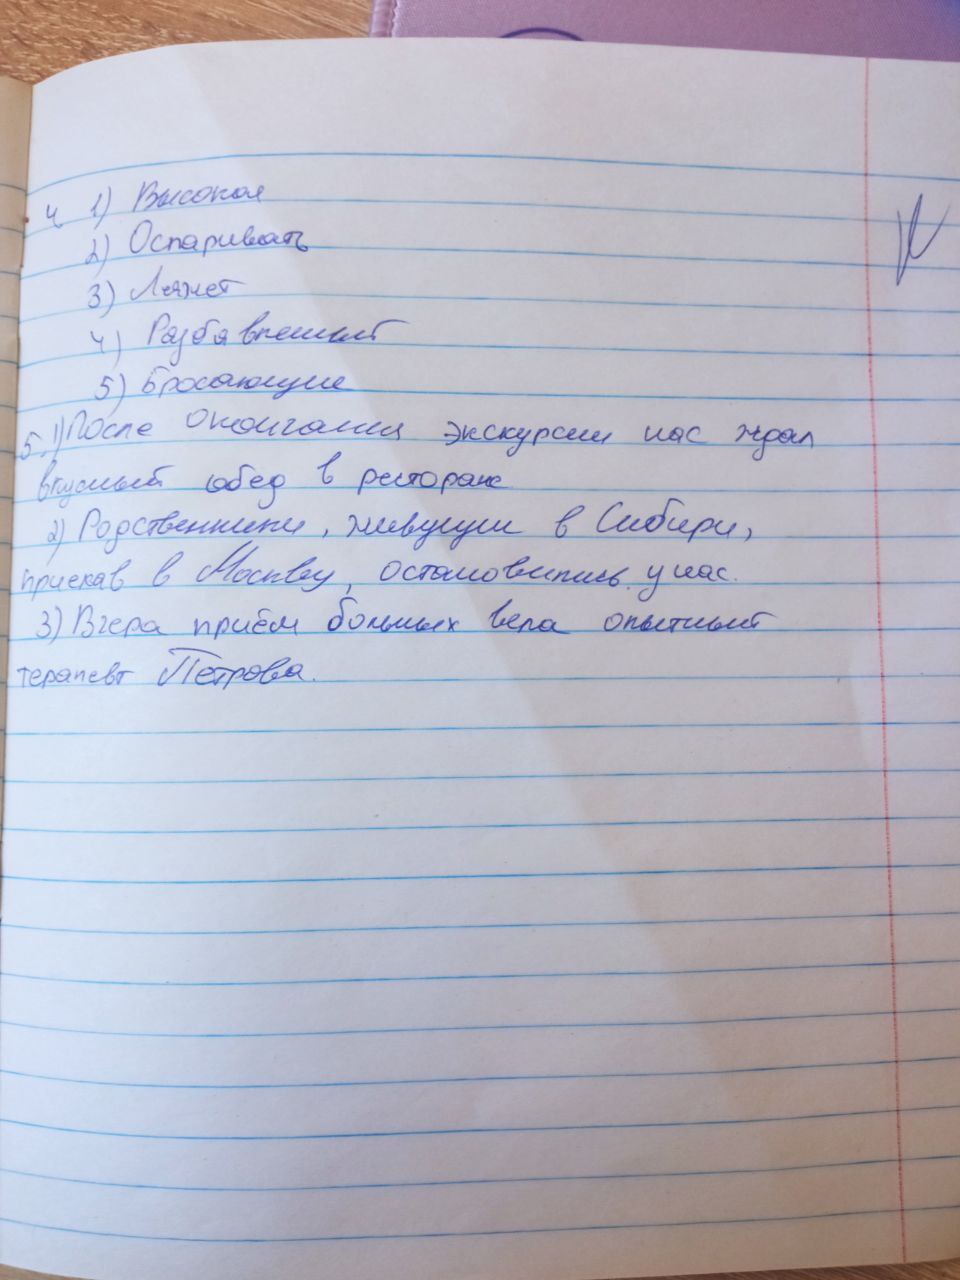 4 1) Высокая
2) Оспаривать
3) Ляжет
4) Разбавленный
5) Бросающие
5. 1) После окончания экскурсии нас ждал
вкусный обед в ресторане
2) Родственники, живущие в Сибири,
приехав в Москву, остановились у нас.
3) Вчера приём больных вела опытный
терапевт Петрова.